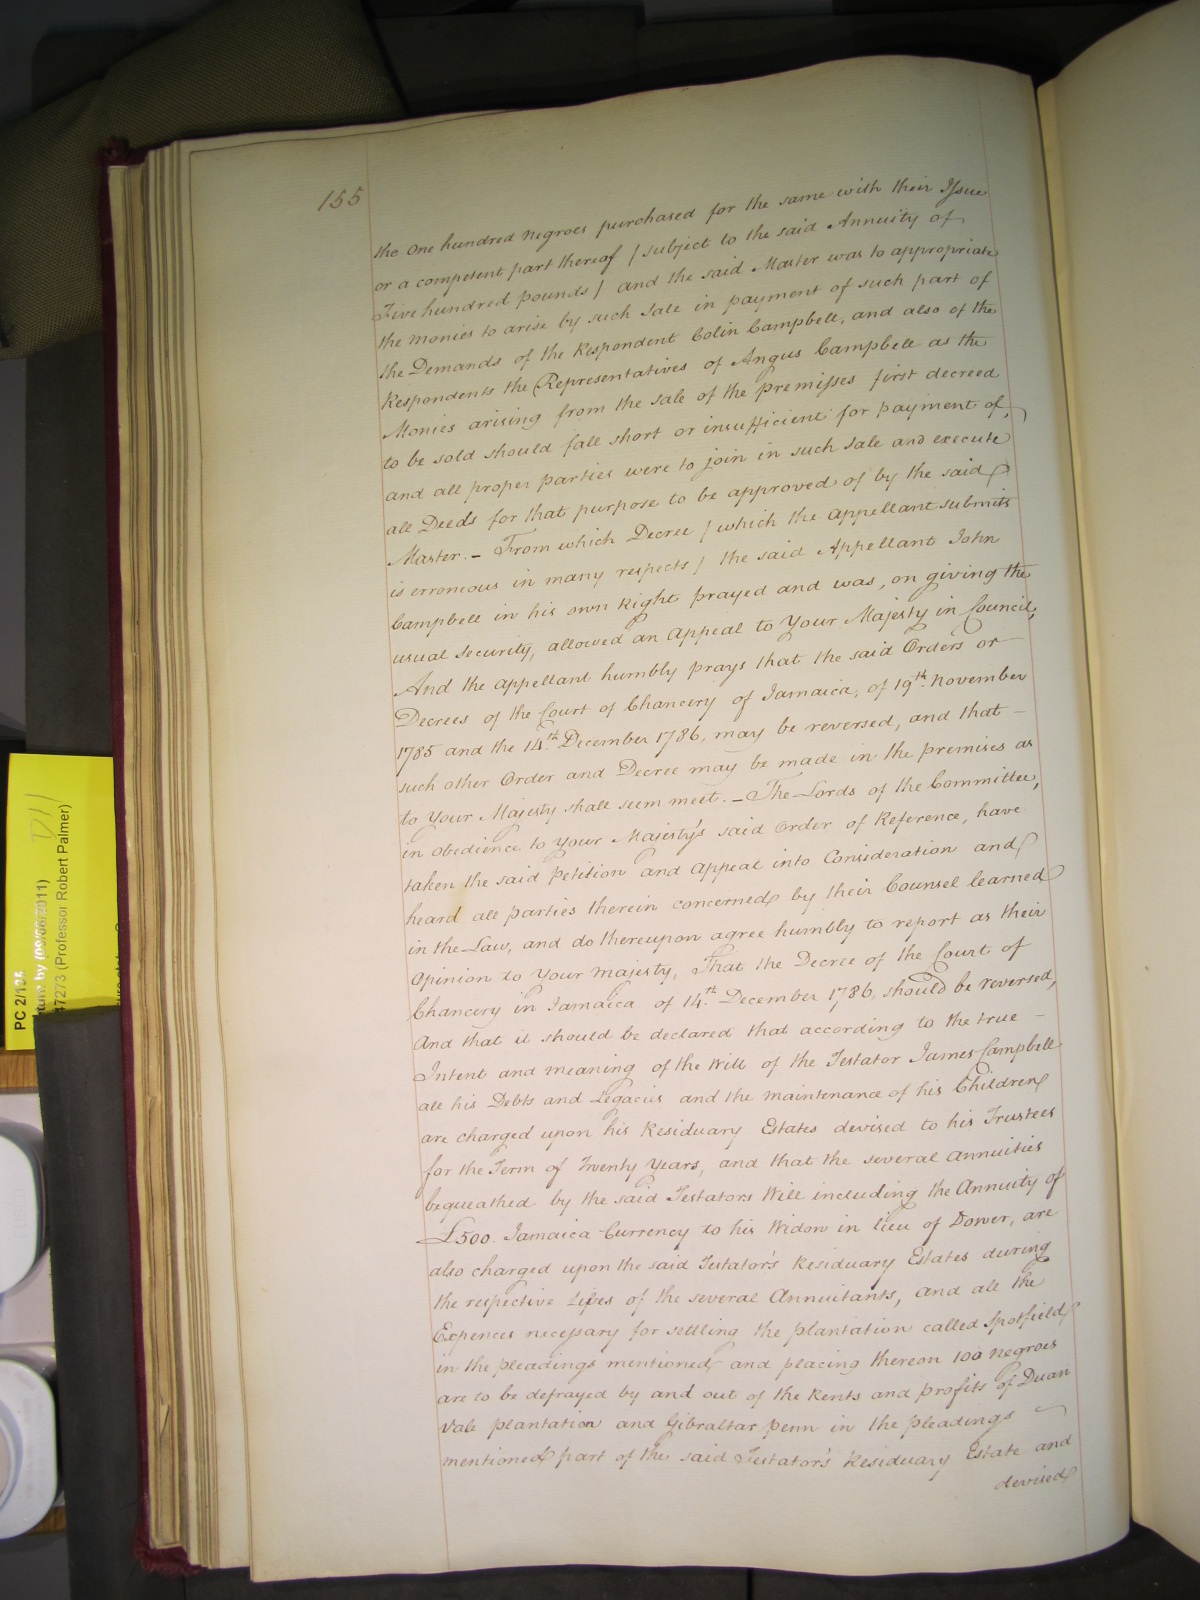 155
the One hundred Negroes purchased for the same with their Issue
or a competent part thereof / subject to the said Annuity of
Five hundred pounds / and the said Master was to appropriate
the Monies to arise by such Sale in payment of such part of
the Demands of the Respondent Colin Campbell, and also of the
Respondents the Representatives of Angus Campbell as the
Monies arising from the sale of the premisses first decreed
to be sold should fall short or insufficient for payment of,
and all proper parties were to join in such sale and execute
all Deeds for that purpose to be approved of by the said
Master. – From which Decree / which the appellant submits
is erroneous in many respects / the said Appellant John
Campbell in his own Right prayed and was, on giving the
usual Security, allowed an Appeal to Your Majesty in Council,
And the appellant humbly prays that the said Orders or
Decrees of the Court of Chancery of Jamaica, of 19th November
1785 and the 14th December 1786, may be reversed, and that –
such other Order and Decree may be made in the premises as
to Your Majesty shall seem meet. – The Lords of the Committee,
in obedience to Your Majesty's said Order of Reference, have
taken the said Petition and Appeal into Consideration and
heard all parties therein concerned by their Counsel learned
in the Law, and do thereupon agree humbly to report as their
Opinion to Your Majesty, That the Decree of the Court of
Chancery in Jamaica of 14th December 1786, should be reversed,
And that it should be declared that according to the true –
Intent and meaning of the Will of the Testator James Campbell
all his Debts and Legacies and the maintenance of his Children
are charged upon his Residuary Estates devised to his Trustees
for the Term of Twenty Years, and that the several Annuities
bequeathed by the said Testators Will including the Annuity of
£500. Jamaica Currency to his Widow in lieu of Dower, are
also charged upon the said Testator's Residuary Estates during
the respective Lives of the several Annuitants, and all the
Expences necessary for settling the plantation called Spotfield
in the pleadings mentioned and placing thereon 100 Negroes
are to be defrayed by and out of the Rents and profits of Duan
Vale plantation and Gibraltar penn in the pleadings
mentioned part of the said Testator's Residuary Estate and
devised
PC 2/135
(09/06/2011)
47273 (Professor Robert Palmer)